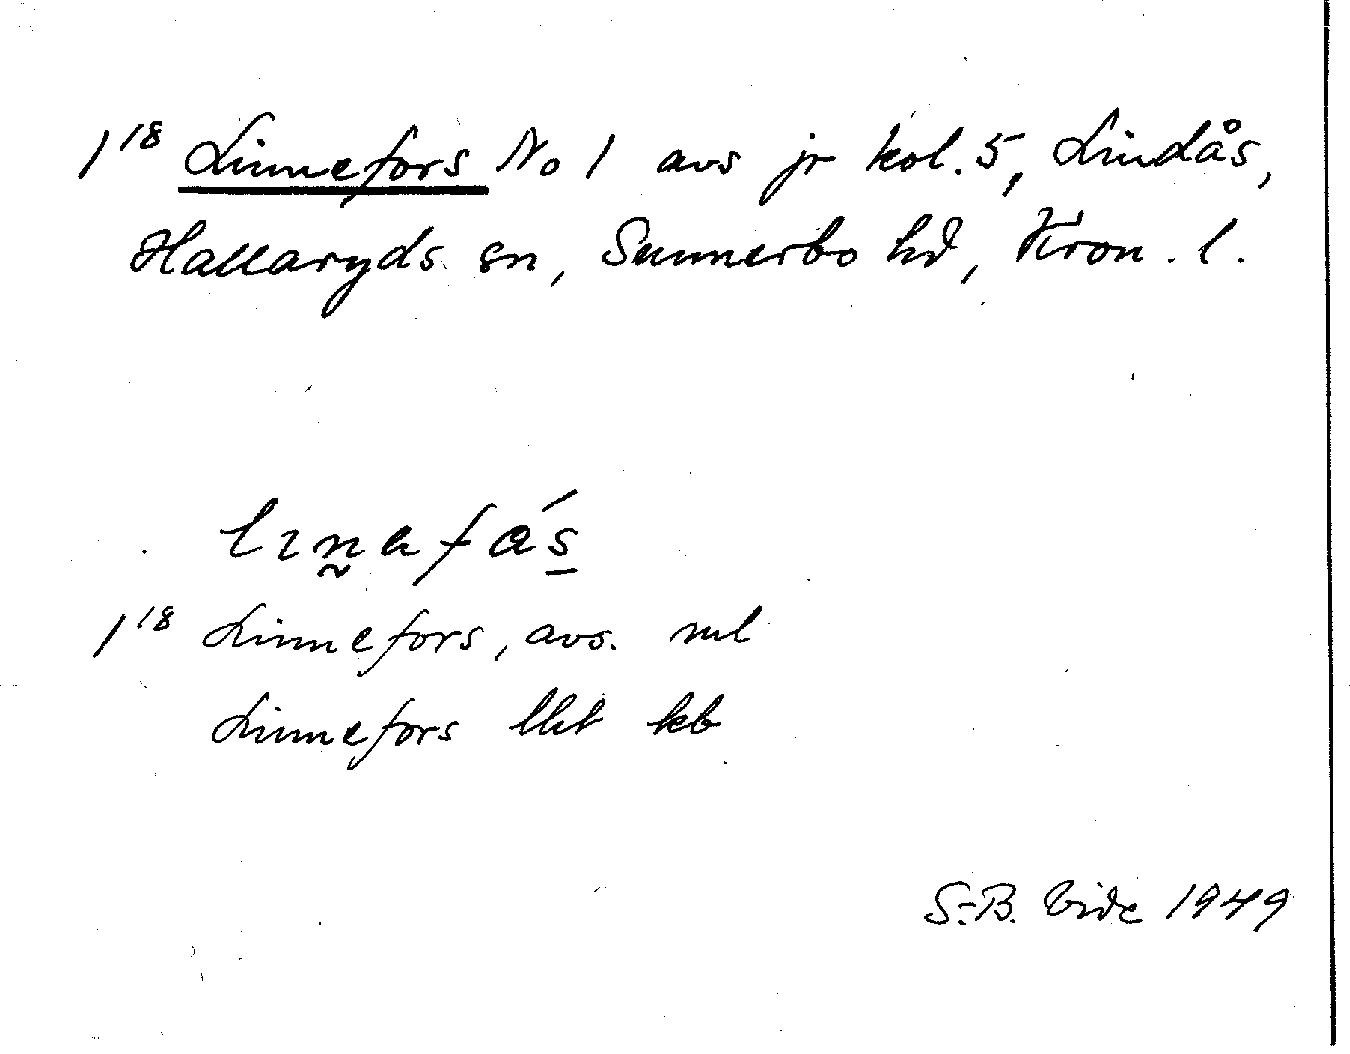 1¹⁸ Linnefors No 1 avs jr kol. 5, Lindås,
Hallaryds sn, Sunnerbo hd, Kron. l.
1¹⁸ Linnefors, avs. ml
Linnefors lht kb
S.-B. Vide 1949